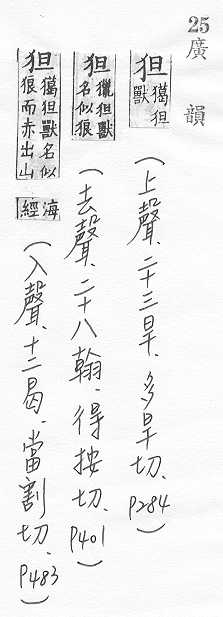 25
廣韻
狚 獦狚獸 (上聲、二十三旱、多旱切、P284)
狚 獵狚獸名似狼 (去聲、二十八翰、得按切、P401)
狚 獦狚獸名似狼而赤出山海經 (入聲、十二曷、當割切、P483)